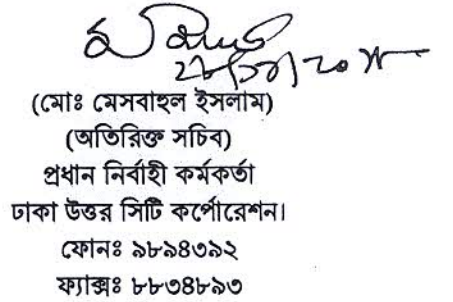 (মোঃ মেসবাহুল ইসলাম)
(অতিরিক্ত সচিব)
প্রধান নির্বাহী কর্মকর্তা
ঢাকা উত্তর সিটি কর্পোরেশন।
ফোনঃ ৯৮৯৪৩৯২
ফ্যাক্সঃ ৮৮৩৪৮৯৩